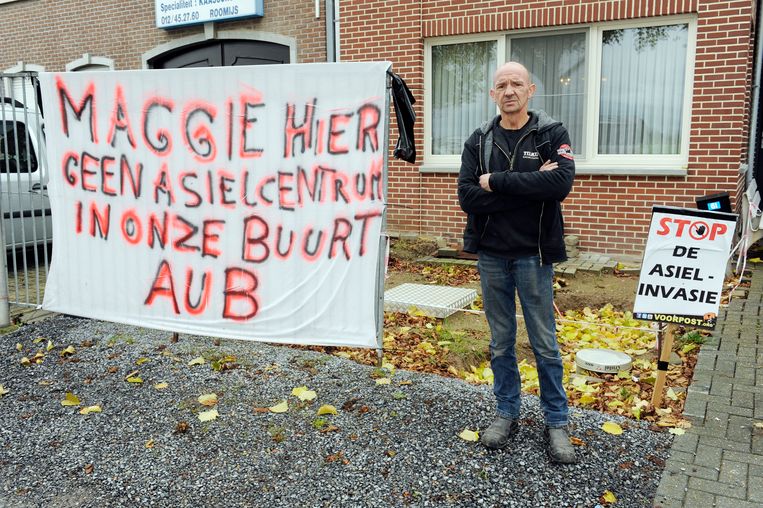 Specialiteit: KAASSO
012/45.27.60 ROOMIJS
MAGGIE HIER
GEEN ASIELCENTRUM
IN ONZE BUURT
AUB
STOP
DE
ASIEL-
INVASIE
VOORPOST.org